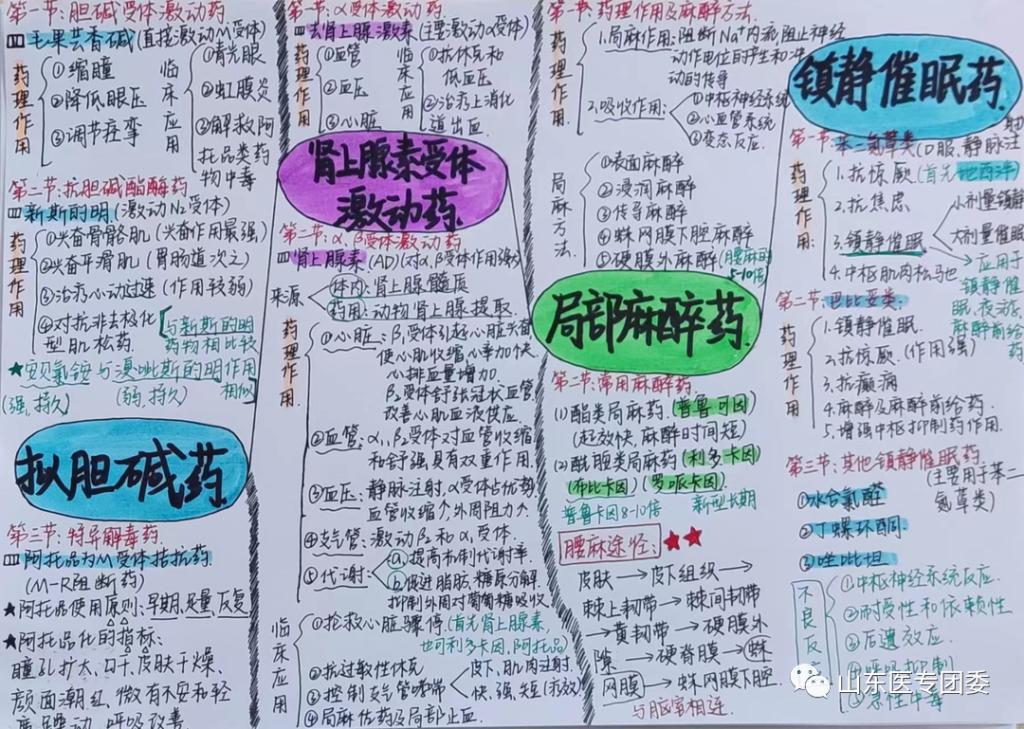 第一节:胆碱受体激动药
毛果芸香碱(直接激动M受体)
药理作用
①缩瞳
②降低眼压
③调节痉挛
临床应用
①青光眼
②虹膜炎
③解救阿
托品类药
物中毒
第二节:抗胆碱酯酶药
新斯的明(激动N₂受体)
药理作用
①兴奋骨骼肌(兴奋作用最强)
②兴奋平滑肌(胃肠道次之)
③治疗心动过速(作用较弱)
④对抗非去极化
型肌松药
与新斯的明
药物相比较
★安贝氯铵与溴吡斯的明作用
(强,持久) (弱,持久) 相似
拟胆碱药
第三节:特异解毒药
阿托品为M受体拮抗药
(M-R阻断药)
★阿托品使用原则:早期、足量、反复
★阿托品化的指标:
瞳孔扩大、口干、皮肤干燥、
颜面潮红、微有不安和轻
度躁动、呼吸改善
第一节:α受体激动药
去肾上腺激素(主要激动α受体)
药理作用
①血管
②血压
③心脏
临床应用
①抗休克和
低血压
②治疗上消化
道出血
肾上腺素受体
激动药
第二节:α,β受体激动药
肾上腺素(AD)(对α,β受体作用强)
来源
体内:肾上腺髓质
药用:动物肾上腺提取
药理作用
①心脏:β₁受体引起心脏兴奋
使心肌收缩心率加快
心排血量增加
β₂受体舒张冠状血管
改善心肌血液供应
②血管:α₁,β₂受体对血管收缩
和舒强具有双重作用
③血压:静脉注射,α受体占优势
血管收缩外周阻力大
④支气管:激动β₂和α,受体
⑤代谢:
a.提高机制代谢率
b.促进脂肪、糖原分解
抑制外周对葡萄糖吸收
临床应用
①抢救心脏骤停(首先肾上腺素,
也可利多卡因,阿托品)
②抗过敏性休克
③控制支气管哮喘
皮下、肌肉注射,
快、强、短(疗效)
④局麻佐药及局部止血
第一节:药理作用及麻醉方法
药理作用
1.局麻作用:阻断Na⁺内流,阻止神经
动作电位的产生和冲
动的传导
2.吸收作用:
①中枢神经系统
②心血管系统
③变态反应
局麻方法:
①表面麻醉
②浸润麻醉
③传导麻醉
④蛛网膜下腔麻醉
⑤硬膜外麻醉(腰麻的
5-10倍
局部麻醉药
第二节:常用麻醉药
(1)酯类局麻药(普鲁卡因)
(起效快,麻醉时间短)
(2)酰胺类局麻药(利多卡因)
(布比卡因)(罗哌卡因)
普鲁卡因8-10倍 新型长期
腰麻途径:★★
皮肤→皮下组织→
棘上韧带→棘间韧带
→黄韧带→硬膜外
隙→硬脊膜→蛛
网膜→蛛网膜下腔
与脑室相连
镇静催眠药
第一节:苯二氮䓬类(口服,静脉注
药理作用:
1.抗惊厥(首先地西泮)
2.抗焦虑
3.镇静催眠
小剂量镇静
大剂量催眠
4.中枢肌肉松弛
应用于
镇静催
眠,夜动症,
麻醉前给
药
第二节:巴比妥类
药理作用
1.镇静催眠
2.抗惊厥(作用强)
3.抗癫痫
4.麻醉及麻醉前给药
5.增强中枢抑制药作用
第三节:其他镇静催眠药
(主要用于苯二
氮䓬类)
①水合氯醛
②丁螺环酮
③唑吡坦
不良反
①中枢神经系统反应
②耐受性和依赖性
③后遗效应
④呼吸抑制
⑤急性中毒
山东医专团委